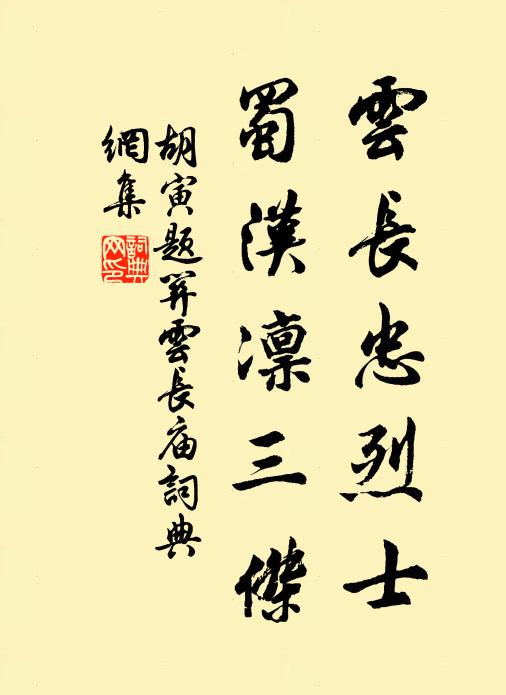 雲長忠烈士
蜀漢凜三傑
胡寅题関雲長庙詞典
網集
詞典網印